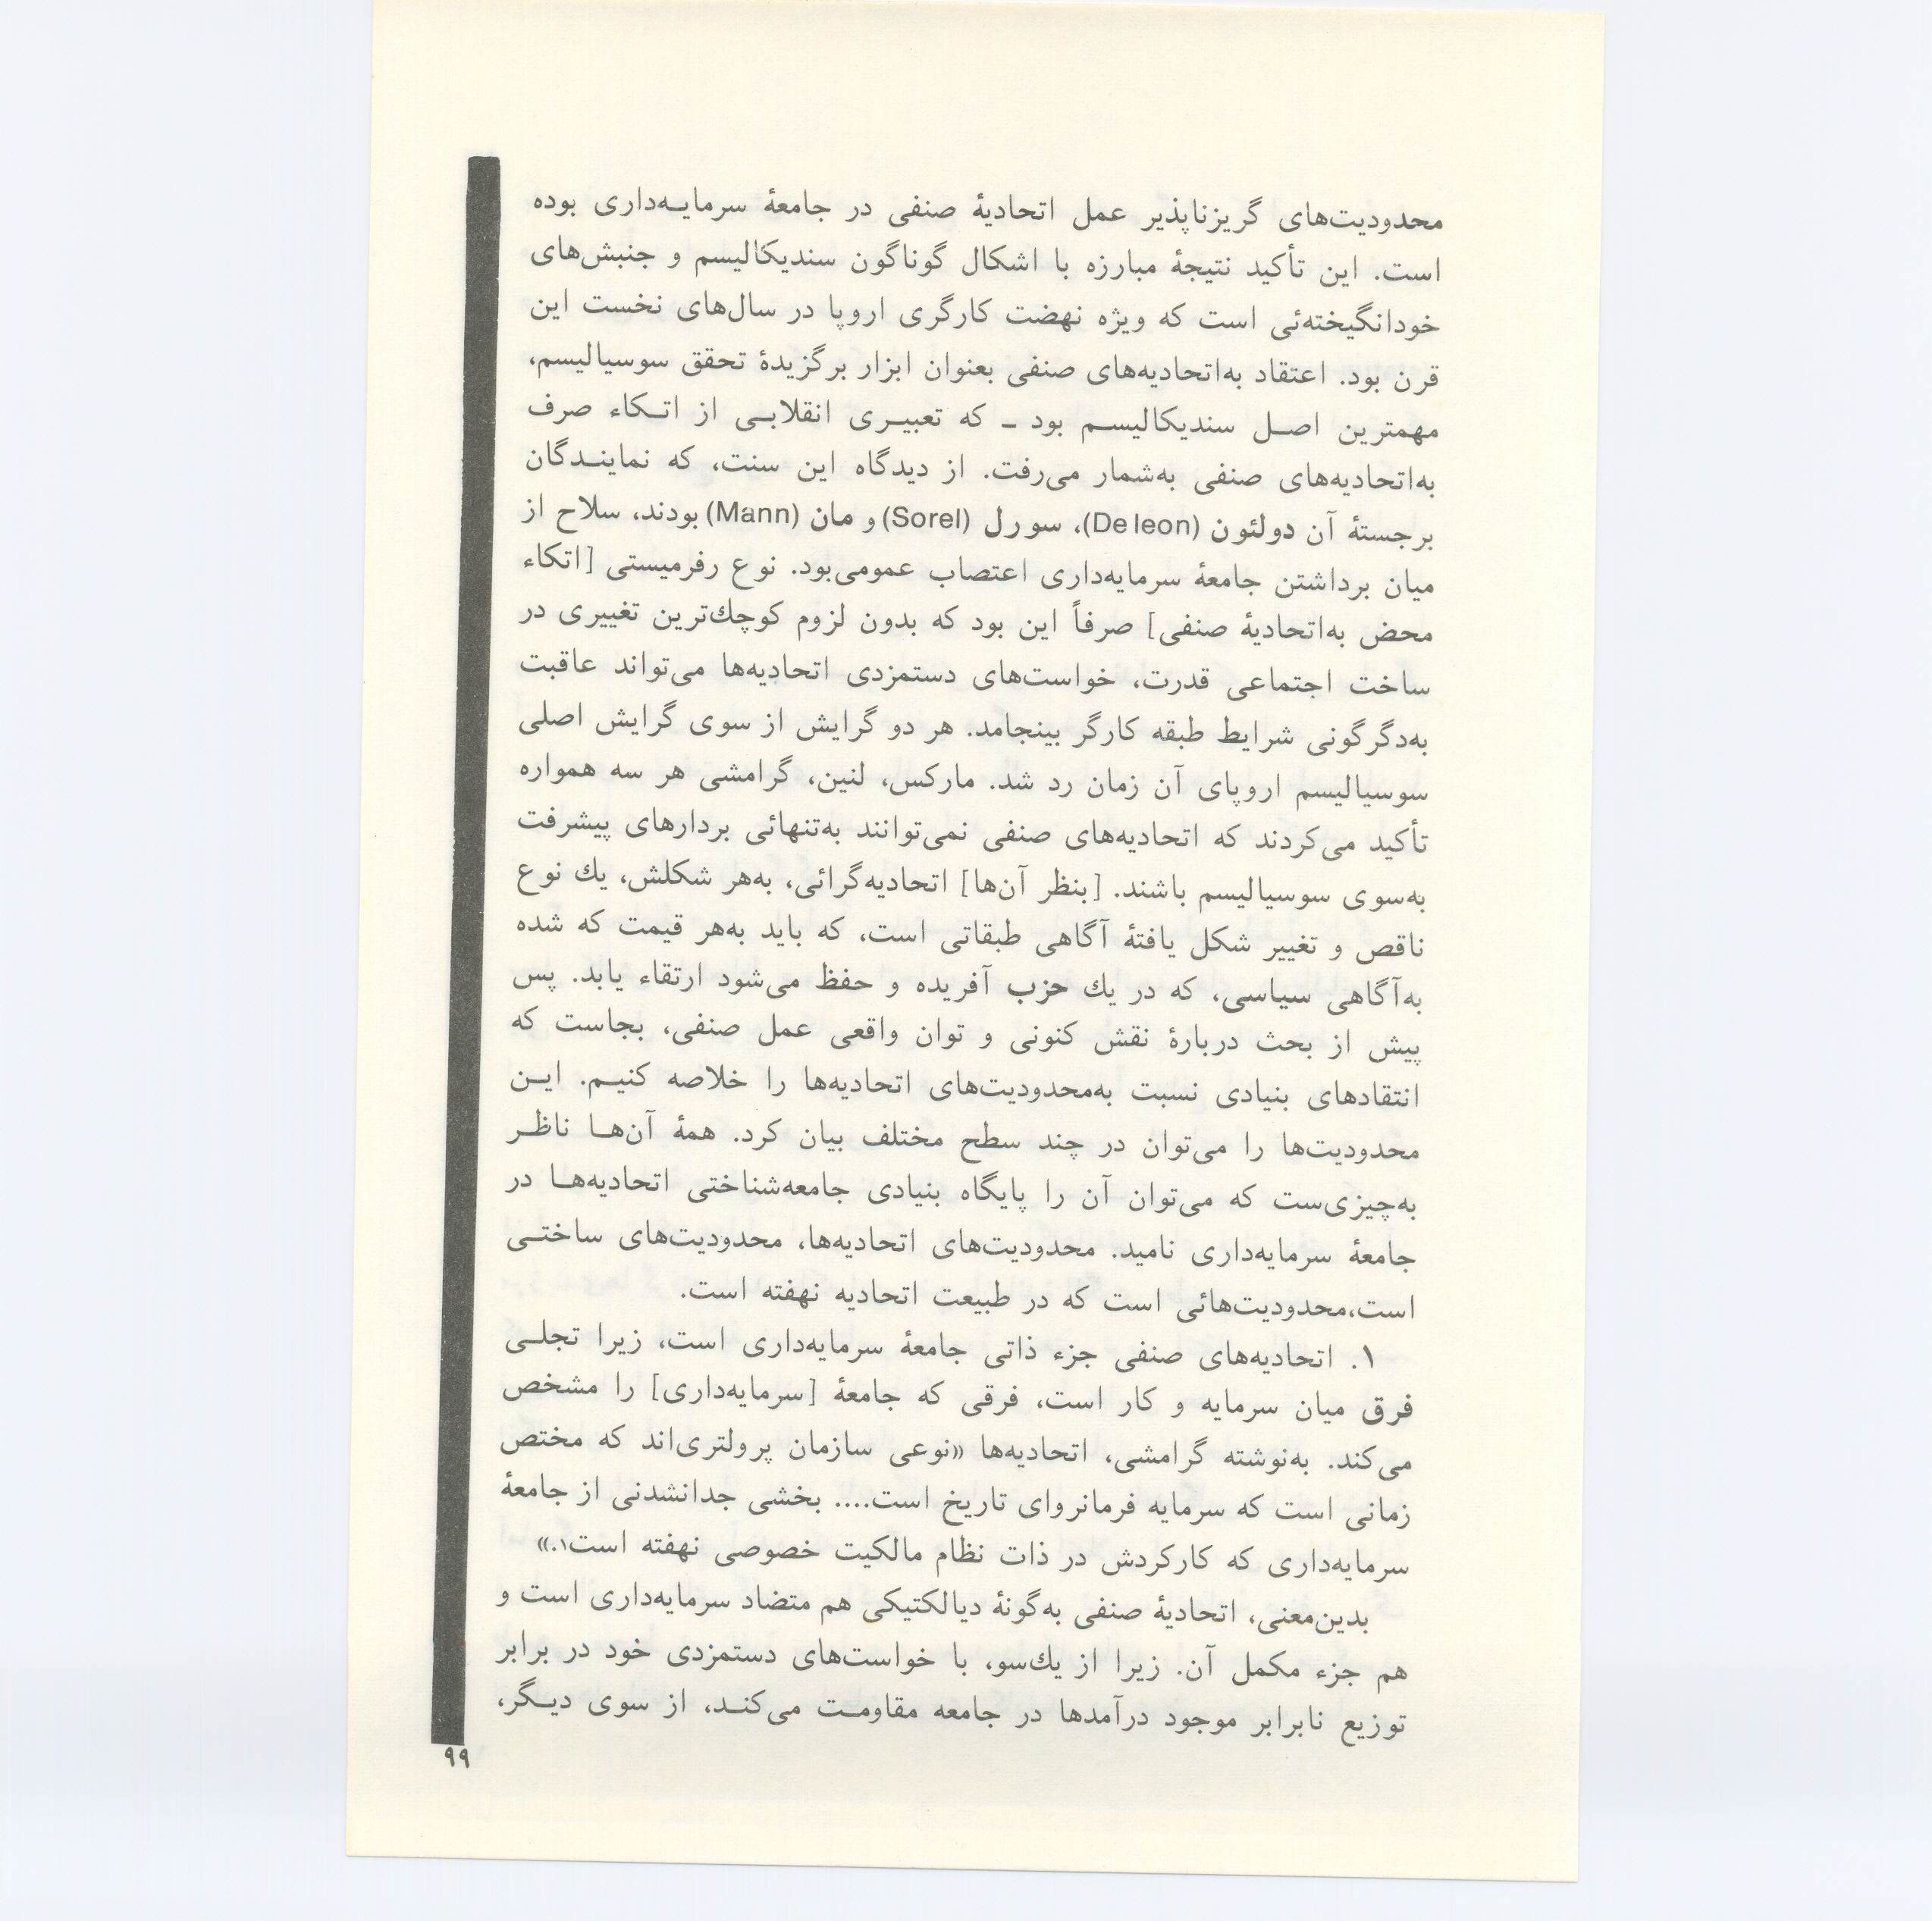 محدودیت‌های گریزناپذیر عمل اتحادیهٔ صنفی در جامعهٔ سرمایـه‌داری بوده
است. این تأکید نتیجهٔ مبارزه با اشکال گوناگون سندیکالیسم و جنبش‌های
خودانگیخته‌ئی است که ویژه نهضت کارگری اروپا در سال‌های نخست این
قرن بود. اعتقاد به‌اتحادیه‌های صنفی بعنوان ابزار برگزیدهٔ تحقق سوسیالیسم،
مهمترین اصـل سندیکالیسـم بود ــ که تعبیـری انقلابـی از اتـکاء صرف
به‌اتحادیه‌های صنفی به‌شمار می‌رفت. از دیدگاه این سنت، که نماینـدگان
برجستهٔ آن دولئون (De leon)، سورل (Sorel) و مان (Mann) بودند، سلاح از
میان برداشتن جامعهٔ سرمایه‌داری اعتصاب عمومی‌بود. نوع رفرمیستی [اتکاء
محض به‌اتحادیهٔ صنفی] صرفاً این بود که بدون لزوم کوچك‌ترین تغییری در
ساخت اجتماعی قدرت، خواست‌های دستمزدی اتحادیه‌ها می‌تواند عاقبت
به‌دگرگونی شرایط طبقه کارگر بینجامد. هر دو گرایش از سوی گرایش اصلی
سوسیالیسم اروپای آن زمان رد شد. مارکس، لنین، گرامشی هر سه همواره
تأکید می‌کردند که اتحادیه‌های صنفی نمی‌توانند به‌تنهائی بردارهای پیشرفت
به‌سوی سوسیالیسم باشند. [بنظر آن‌ها] اتحادیه‌گرائی، به‌هر شکلش، یك نوع
ناقص و تغییر شکل یافتهٔ آگاهی طبقاتی است، که باید به‌هر قیمت که شده
به‌آگاهی سیاسی، که در یك حزب آفریده و حفظ می‌شود ارتقاء یابد. پس
پیش از بحث دربارهٔ نقش کنونی و توان واقعی عمل صنفی، بجاست که
انتقادهای بنیادی نسبت به‌محدودیت‌های اتحادیه‌ها را خلاصه کنیـم. ایـن
محدودیت‌ها را می‌توان در چند سطح مختلف بیان کرد. همهٔ آن‌هـا ناظـر
به‌چیزی‌ست که می‌توان آن را پایگاه بنیادی جامعه‌شناختی اتحادیه‌هـا در
جامعهٔ سرمایه‌داری نامید. محدودیت‌های اتحادیه‌ها، محدودیت‌های ساختـی
است،محدودیت‌هائی است که در طبیعت اتحادیه نهفته است.
۱. اتحادیه‌های صنفی جزء ذاتی جامعهٔ سرمایه‌داری است، زیرا تجلـی
فرق میان سرمایه و کار است، فرقی که جامعهٔ [سرمایه‌داری] را مشخص
می‌کند. به‌نوشته گرامشی، اتحادیه‌ها «نوعی سازمان پرولتری‌اند که مختص
زمانی است که سرمایه فرمانروای تاریخ است.... بخشی جدانشدنی از جامعهٔ
سرمایه‌داری که کارکردش در ذات نظام مالکیت خصوصی نهفته است۱.»
بدین‌معنی، اتحادیهٔ صنفی به‌گونهٔ دیالکتیکی هم متضاد سرمایه‌داری است و
هم جزء مکمل آن. زیرا از یك‌سو، با خواست‌های دستمزدی خود در برابر
توزیع نابرابر موجود درآمدها در جامعه مقاومـت می‌کنـد، از سوی دیـگر،
۹۹